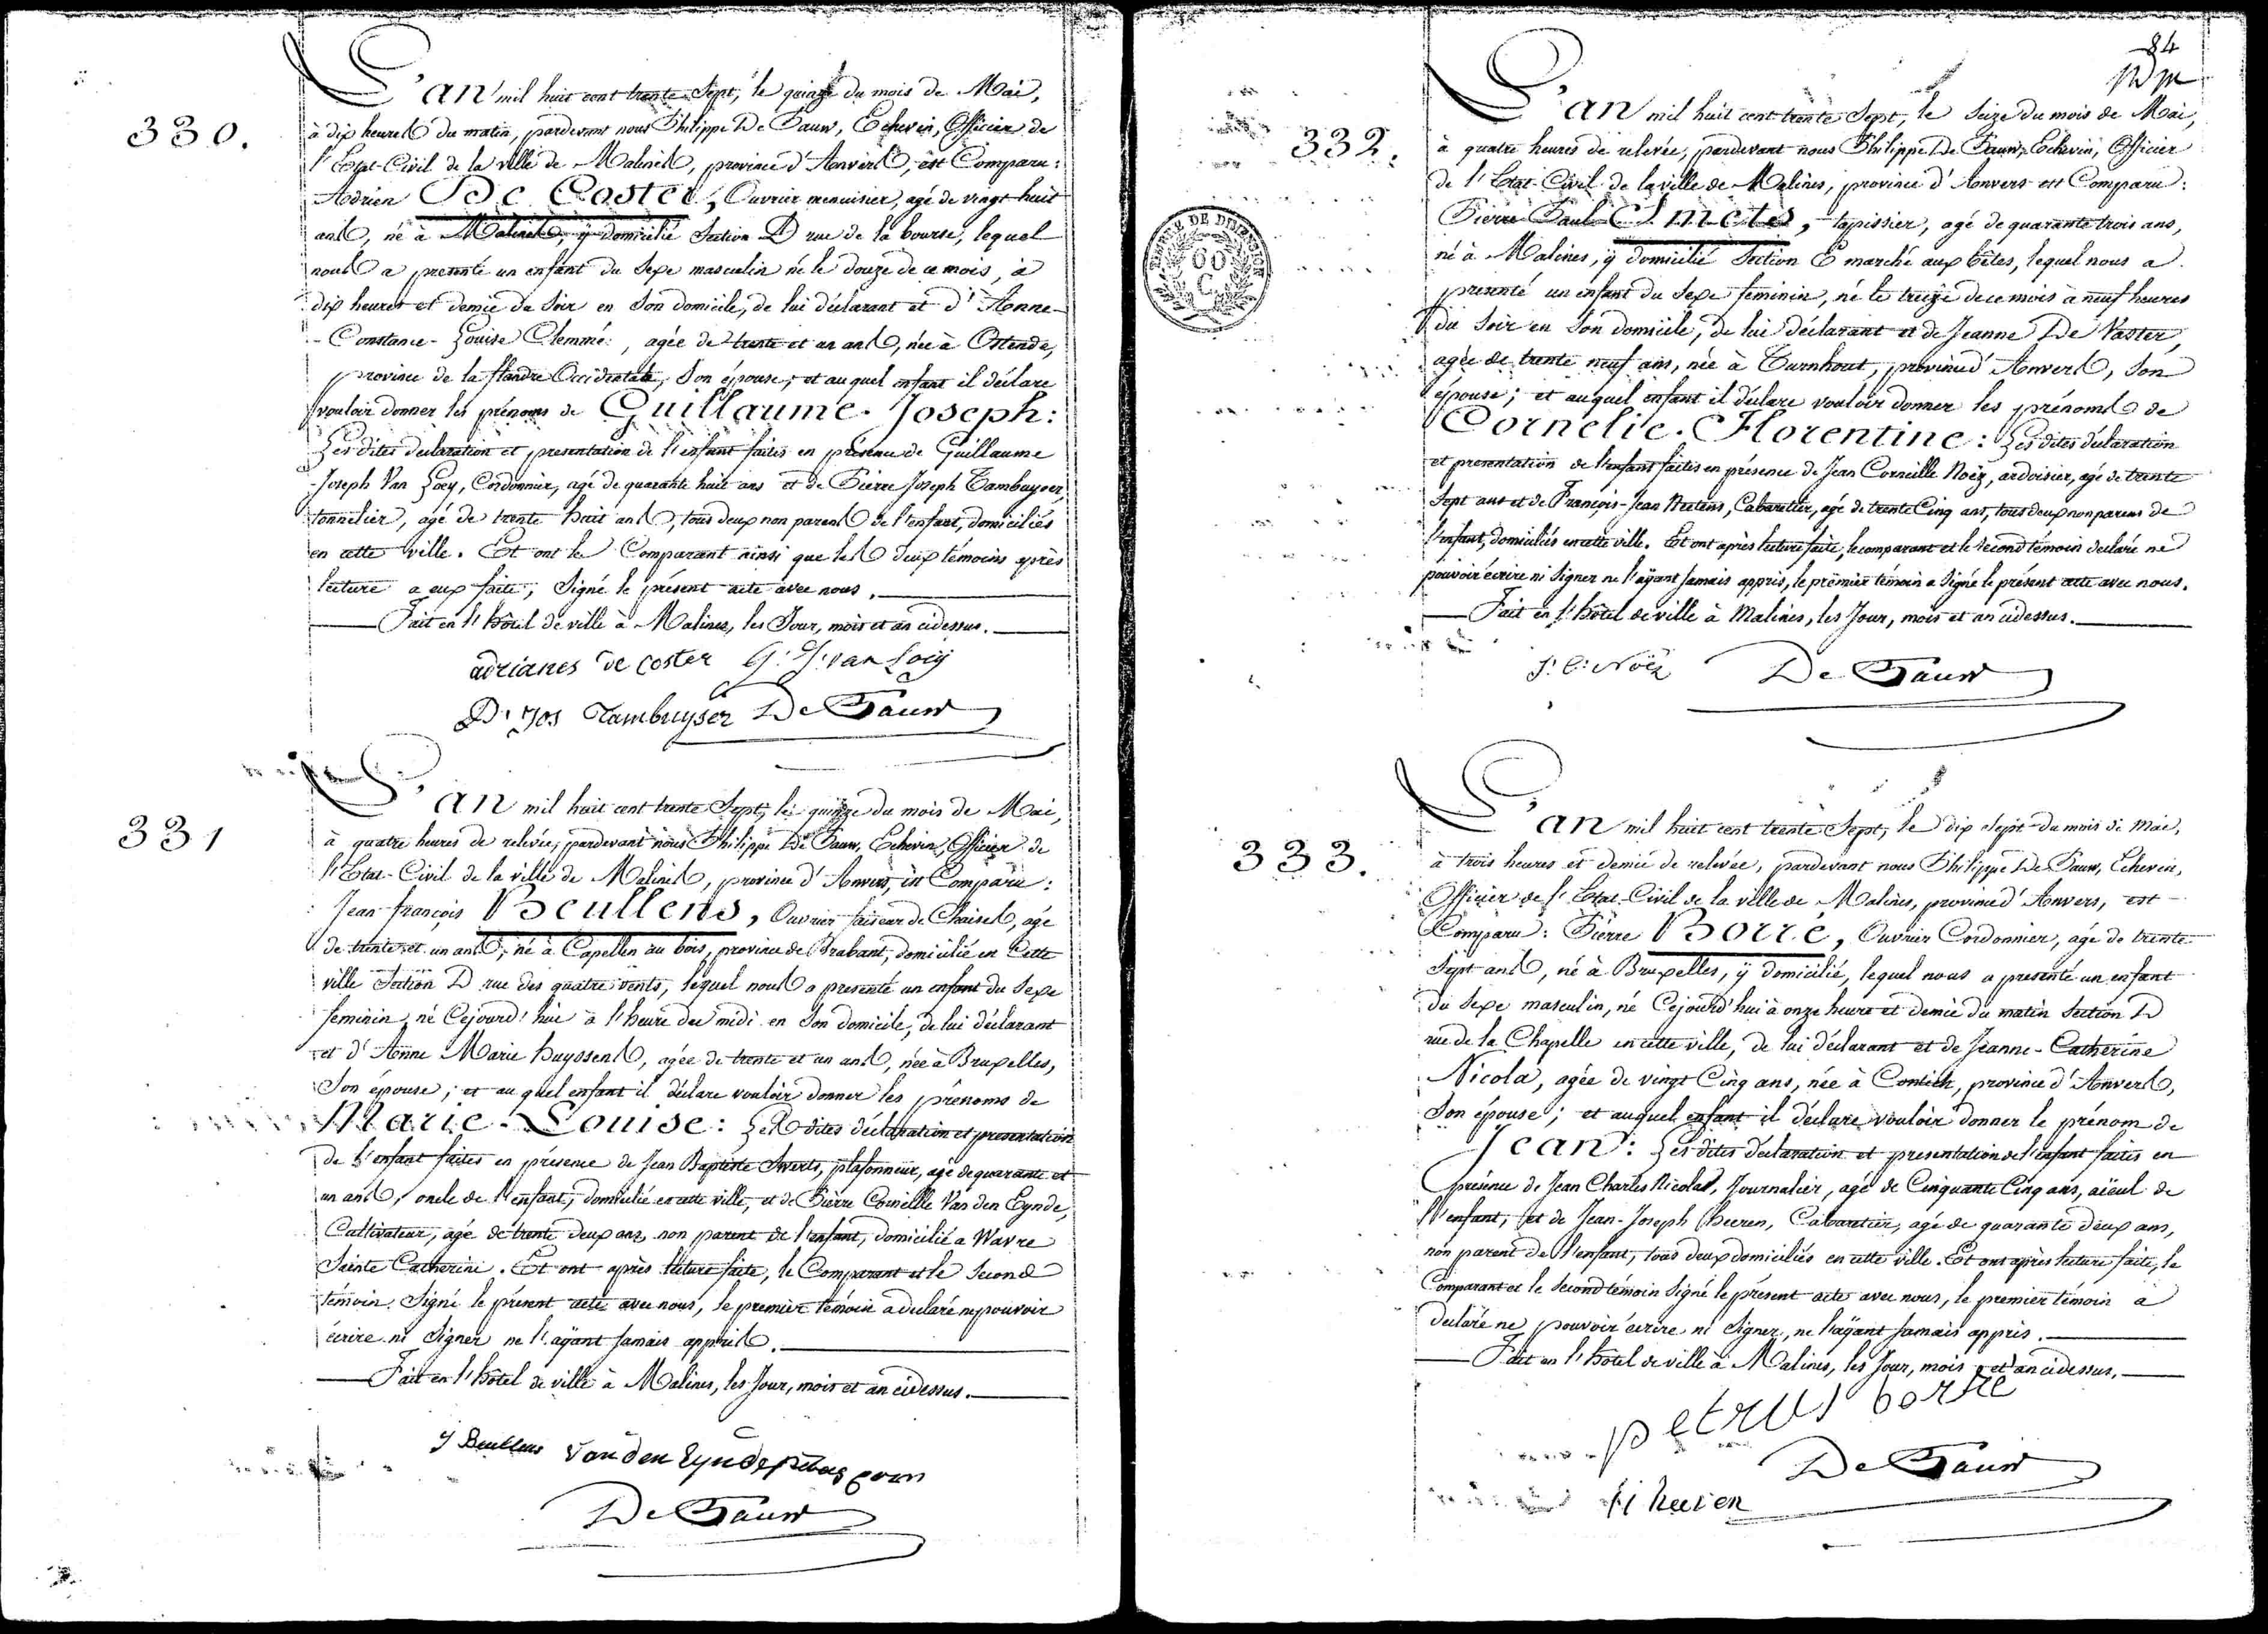 330.
L'an mil huit cent trente Sept, le quinze du mois de Mai,
à dix heures du matin, pardevant nous Philippe De Pauw, Echevin, Officier de
l'Etat-Civil de la ville de Malines, province d'Anvers, est Comparu:
Adrien De Coster, Ouvrier menuisier, agé de vingt-huit
ans, né à Malines, y domicilié Section D rue de la bourse, lequel
nous a presenté un enfant du Sexe masculin né le douze de ce mois, à
dix heures et demie du Soir en Son domicile, de lui déclarant et d'Anne-
-Constance-Louise Clemmé, agée de trente et un ans, née à Ostende,
province de la flandre Occidentale, Son épouse; et au quel enfant il déclare
vouloir donner les prénoms de Guillaume-Joseph:
Les dites declaration et presentation de l'enfant faites en présence de Guillaume
-Joseph Van Loey, Cordonnier, agé de quarante huit ans et de Pierre Joseph Tambuyser,
tonnelier, agé de trente huit ans, tous deux non parens de l'enfant, domiciliés
en cette ville. Et ont le Comparant ainsi que les deux témoins après
lecture a eux faite, Signé le présent acte avec nous.
Fait en l'hôtel de ville à Malines, les Jour, mois et an cidessus.
adrianes de coster G: J: van Loeij
P: Jos Tambuyser De Pauw
331
L'an mil huit cent trente Sept, le quinze du mois de Mai,
à quatre heures de relevée, pardevant nous Philippe De Pauw, Echevin, Officier de
l'Etat-Civil de la ville de Malines, province d'Anvers, est Comparu:
Jean-françois Beullens, Ouvrier faiseur de Chaises, agé
de trente et un ans, né à Capellen au bois, province de Brabant, domicilié en Cette
ville Section D rue des quatre vents, lequel nous a presenté un enfant du Sexe
feminin, né Cejourd'hui à l'heure de midi en Son domicile, de lui déclarant
et d'Anne Marie huyssens, agée de trente et un ans, née à Bruxelles,
Son épouse; et au quel enfant il déclare vouloir donner les prénoms de
Marie-Louise: Les dites déclaration et presentation
de l'enfant faites en présence de Jean Baptiste Swerts, plafonneur, agé de quarante et
un ans, oncle de l'enfant, domicilié en cette ville, et de Pierre Corneille Van den Eynde,
Cultivateur, agé de trente deux ans, non parent de l'enfant, domicilié a Wavre
Sainte Catherine. Et ont après lecture faite, le Comparant et le Second
témoin, Signé le présent acte avec nous, le premier témoin a declaré ne pouvoir
écrire ni Signer ne l'aÿant Jamais appris.
Fait en l'hôtel de ville à Malines, les Jour, mois et an cidessus.
J Beullens Van den Eynde
De Pauw
84
332.
L'an mil huit cent trente Sept, le Seize du mois de Mai,
à quatre heures de relevée, pardevant nous Philippe De Pauw, Echevin, Officier
de l'Etat-Civil de la ville de Malines, province d'Anvers est Comparu:
Pierre Paul Smets, tapissier, agé de quarante trois ans,
né à Malines, y domicilié Section E marché aux bêtes, lequel nous a
presenté un enfant du Sexe feminin, né le treize de ce mois à neuf heures
du Soir en Son domicile, de lui déclarant et de Jeanne De Vaster,
agée de trente neuf ans, née à Turnhout, province d'Anvers, Son
épouse; et auquel enfant il déclare vouloir donner les prénoms de
Cornelie-Florentine: Les dites déclaration
et presentation de l'enfant faites en présence de Jean Corneille Noëz, ardoisier, agé de trente
Sept ans et de François-Jean Neetens, Cabaretier, agé de trente Cinq ans, tous deux non parens de
l'enfant, domiciliés en cette ville. Et ont après lecture faite, le comparant et le Second témoin declaré ne
pouvoir écrire ni Signer ne l'aÿant Jamais appris, le premier témoin a Signé le présent acte avec nous.
Fait en l'hôtel de ville à Malines, les Jour, mois et an cidessus.
J: C: Noëz De Pauw
333.
L'an mil huit cent trente Sept, le dix Sept du mois de Mai,
à trois heures et demie de relevée, pardevant nous Philippe De Pauw, Echevin,
Officier de l'Etat-Civil de la ville de Malines, province d'Anvers, est
Comparu: Pierre Borré, Ouvrier Cordonnier, agé de trente
Sept ans, né à Bruxelles, y domicilié, lequel nous a presenté un enfant
du Sexe masculin, né Cejourd'hui à onze heures et demie du matin Section D
rue de la Chapelle en cette ville, de lui déclarant et de Jeanne-Catherine
Nicola, agée de vingt Cinq ans, née à Contich, province d'Anvers,
Son épouse; et auquel enfant il déclare vouloir donner le prénom de
Jean: Les dites déclaration et presentation de l'enfant faites en
présence de Jean Charles Nicolas, Journalier, agé de Cinquante Cinq ans, aïeul de
l'enfant, et de Jean-Joseph heeren, Cabaretier, agé de quarante deux ans,
non parent de l'enfant, tous deux domiciliés en cette ville. Et ont après lecture faite, le
Comparant et le Second témoin Signé le présent acte avec nous, le premier témoin a
declaré ne pouvoir écrire ni Signer, ne l'aÿant Jamais appris.
Fait en l'hôtel de ville à Malines, les Jour, mois et an cidessus.
petrus borre
De Pauw